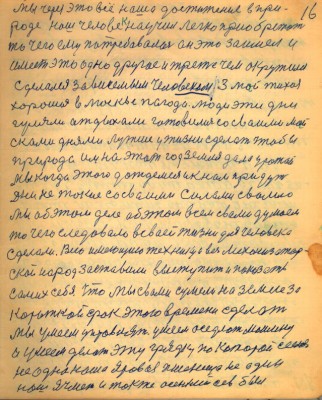 16
мы через это всё нашо достижение в при-
роде наш человек научен легко приобретат
то чего ему потребовалос он это заимел и
имеет это одно другое и трете чем окружил
сделался зависемым человеком. 3 мой тихая
хорошоя в москве погода люди эти дни
гуляли отдыхали готовилис со своими мой
скими днями лутшие у жизни сделат чтобы
природа им на этот год земля дала урожай
мы когда этого дождемся к нам придут
дни не такие со своими силами сколко
мы об этом деле об этом всем своими думаем
то чего следовало всвоей жизни для человека
сделали. Всю имеющую технику всю механизатор-
ской народ заставили выступит и показат
самих себя что мы своми сумели на земле за
короткой срок этого времени сделат
мы умеем управлят умеем оседлат машину
а умеем делат эту грядку по которой сеют
не одна наша яровая пшеница не один
наш ячмен и также осенний сев был